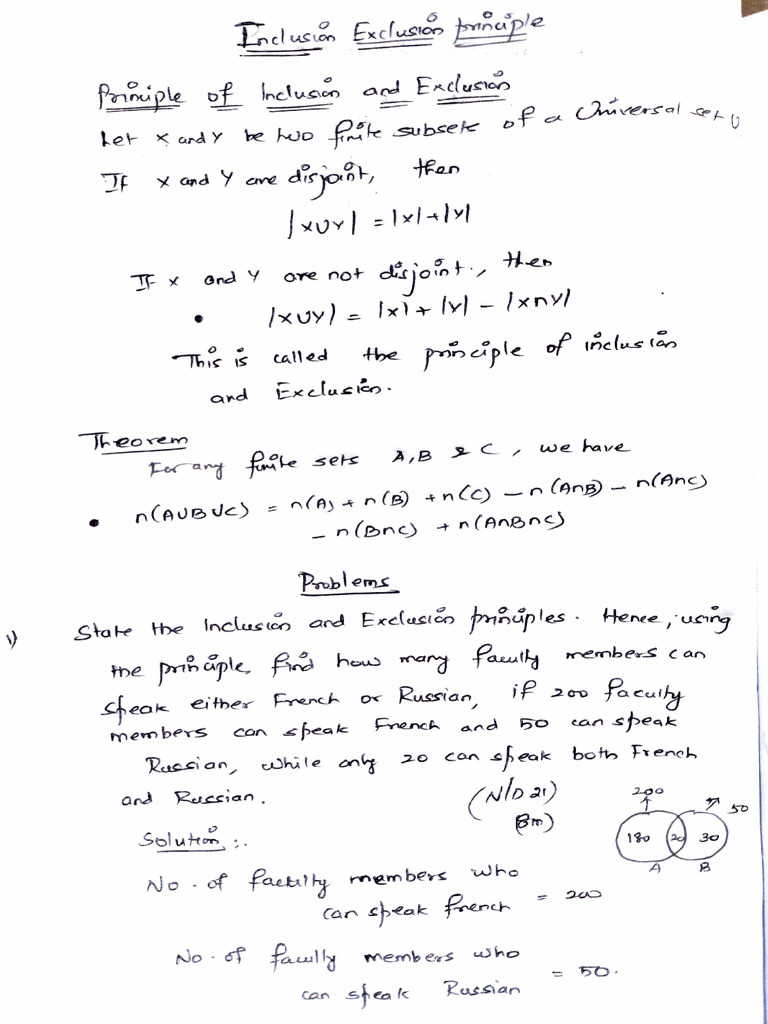 Inclusion Exclusion principle
Principle of Inclusion and Exclusion
Let X and Y be two finite subsets of a Universal set U
If X and Y are disjoint, then
|XUY| = |X|+|Y|
If X and Y are not disjoint., then
• |XUY| = |X|+ |Y| - |X∩Y|
This is called the principle of inclusion
and Exclusion.
Theorem
For any finite sets A, B & C, we have
• n(AUBUC) = n(A) + n(B) + n(C) - n(A∩B) - n(A∩C)
- n(B∩C) + n(A∩B∩C)
Problems
1) State the Inclusion and Exclusion principles. Hence, using
the principle, find how many faculty members can
speak either French or Russian, if 200 faculty
members can speak French and 50 can speak
Russian, while only 20 can speak both French
and Russian. (N/D 21)
(8m)
200 50
180 20 30
A B
Solution:.
No. of faculty members who
can speak french = 200
No. of faculty members who
can speak Russian = 50.